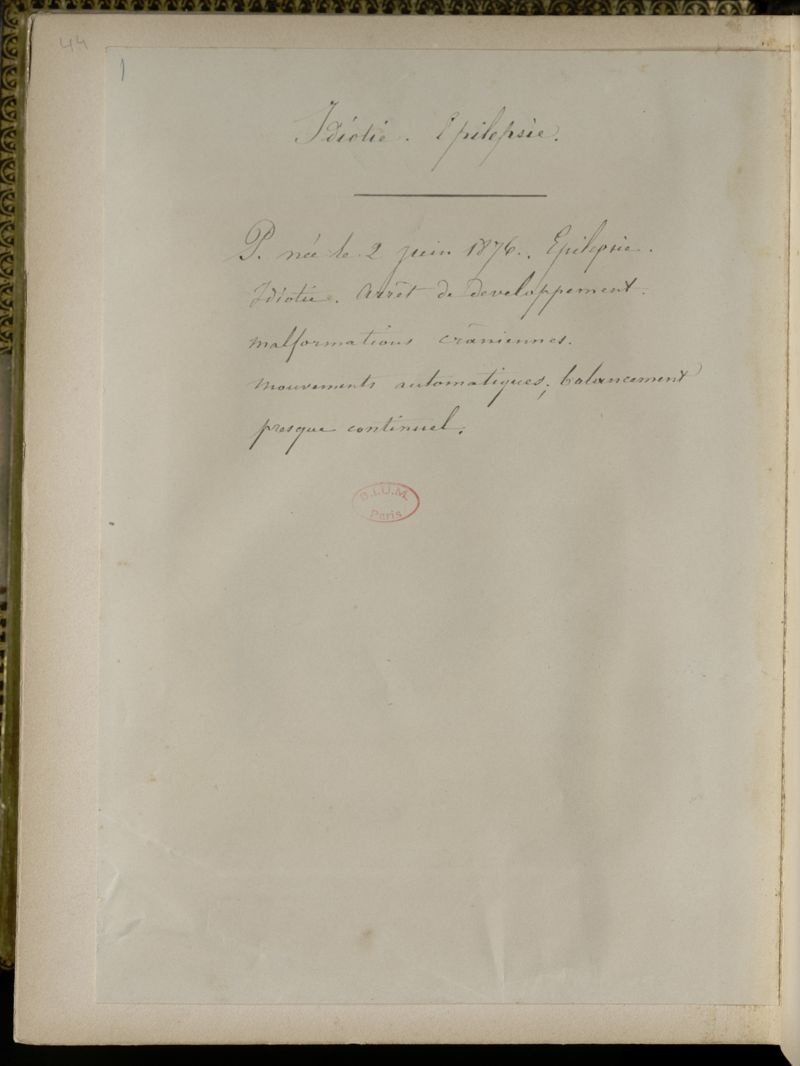 44
Idiotie. Epilepsie.
P. née le 2 juin 1876. Epilepsie.
Idiotie. Arrêt de developpement.
malformations crâniennes.
Mouvements automatiques, balancement
presque continuel.
B.I.U.M.
Paris